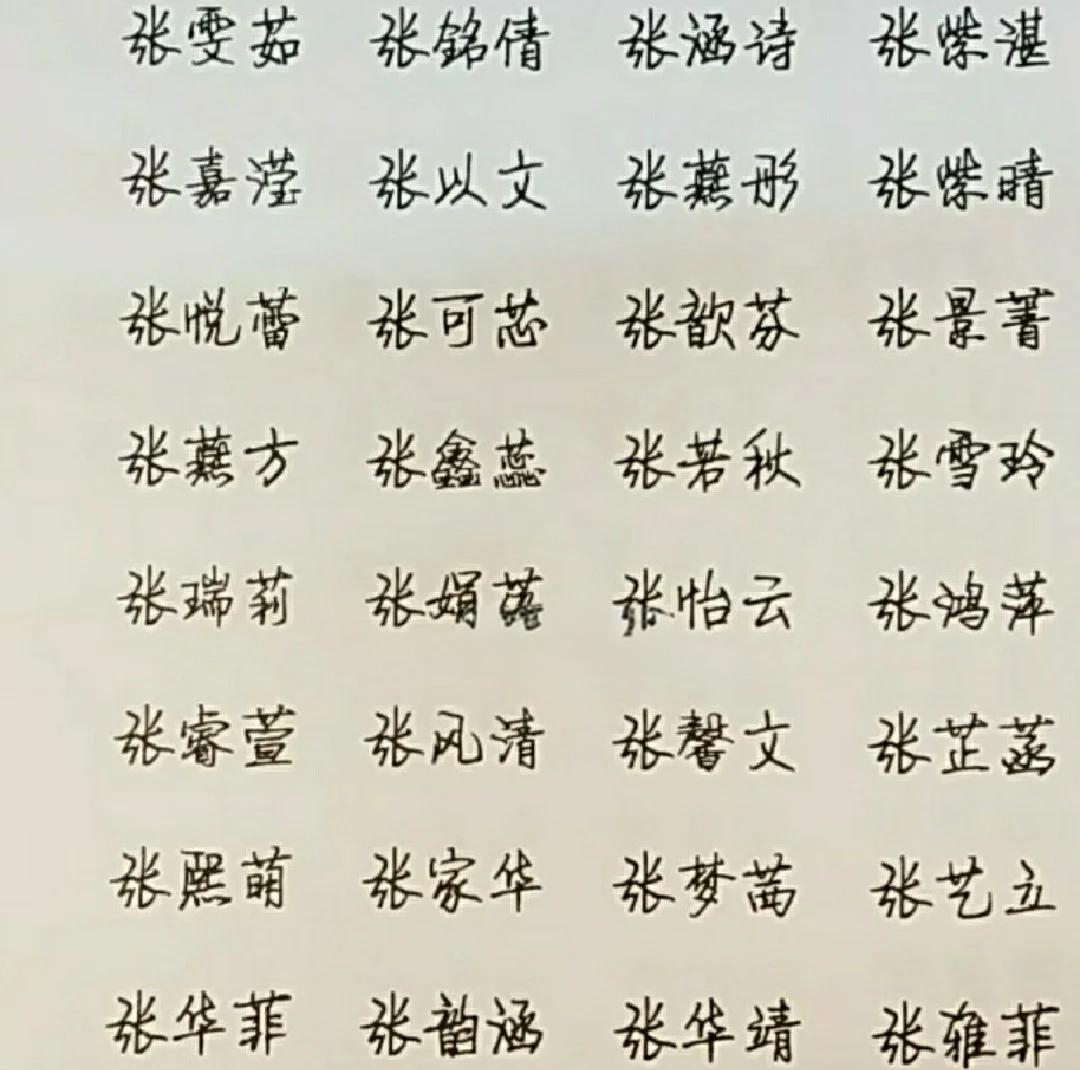 张雯茹 张铭倩 张涵诗 张紫湛
张嘉滢 张以文 张蕻彤 张紫晴
张悦蕾 张可芯 张歆芬 张景菁
张蕻方 张鑫蕊 张若秋 张雪玲
张瑞莉 张娟 张怡云 张鸿萍
张睿萱 张风清 张馨文 张芷菡
张熙萌 张家华 张梦茜 张艺立
张华菲 张韵涵 张华靖 张雅菲